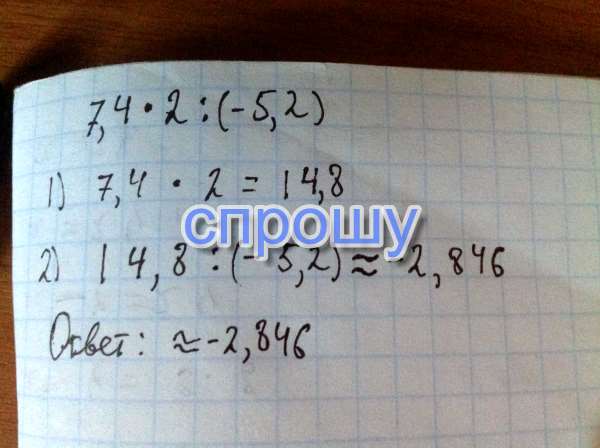 7,4 · 2 : (-5,2)
1) 7,4 · 2 = 14,8
спрошу
2) 14,8 : (-5,2) ≈ -2,846
Ответ: ≈ -2,846